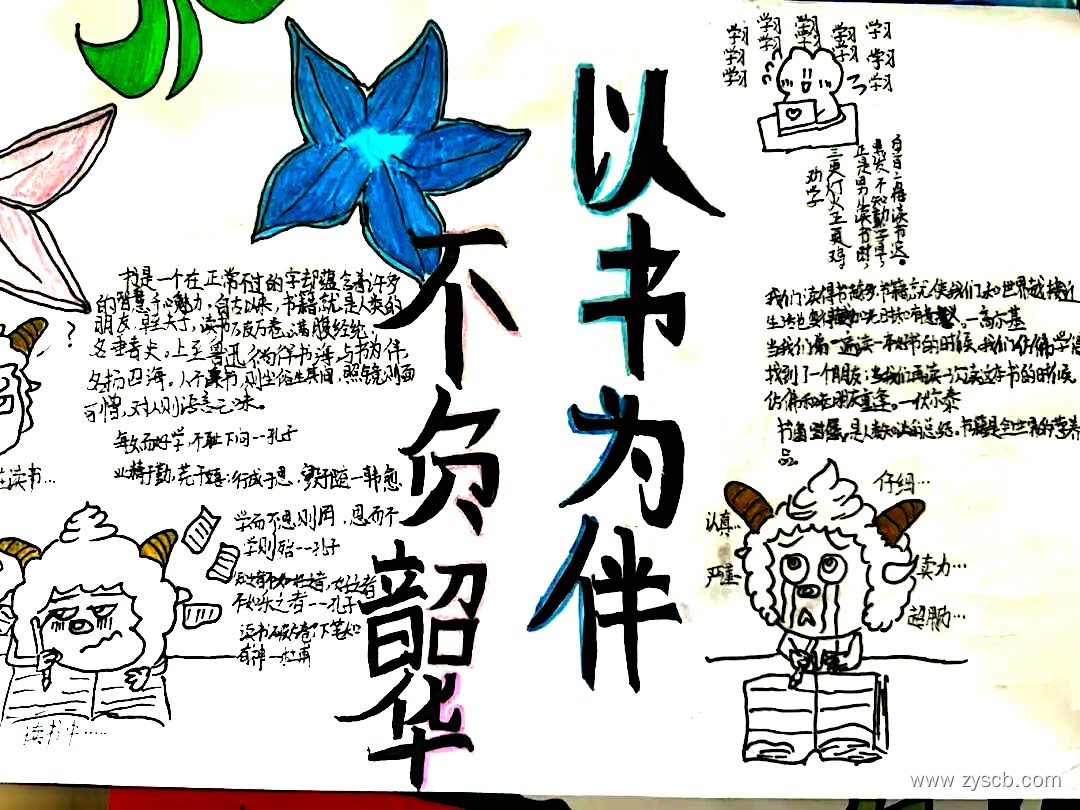 以书为伴
不负韶华
学习 学习 学习 学习 学习
学习 学习 学习 学习
学习 学习
三更灯火五更鸡
正是男儿读书时
黑发不知勤学早
白首方悔读书迟。
劝学
书是一个在正常不过的字却蕴含着许多
的智慧和魅力，自古以来，书籍就是人类的
朋友，
上至鲁迅
名扬四海。
可憎，对人则语言无味。
每敏而好学，不耻下问--孔子
业精于勤，荒于嬉；行成于思，毁于随一韩愈
学而不思则罔，思而不
学则殆--孔子
知之者不如好之者，好之者
不如乐之者--孔子
读书破万卷下笔如
有神一杜甫
我们读得书越多，书籍就使我们和世界越接近
生活也变得 一高尔基
当我们第一遍读一本好书的时候，我们仿佛学得
找到了一个朋友；当我们再读一次读这本书的时候，
仿佛和老朋友重逢。一伏尔泰
是人类知识的总结。书籍是全世界的营养
品。
?
在读书…
读书中……
认真…
仔细…
严谨
卖力…
超肠…
www.zyscb.com